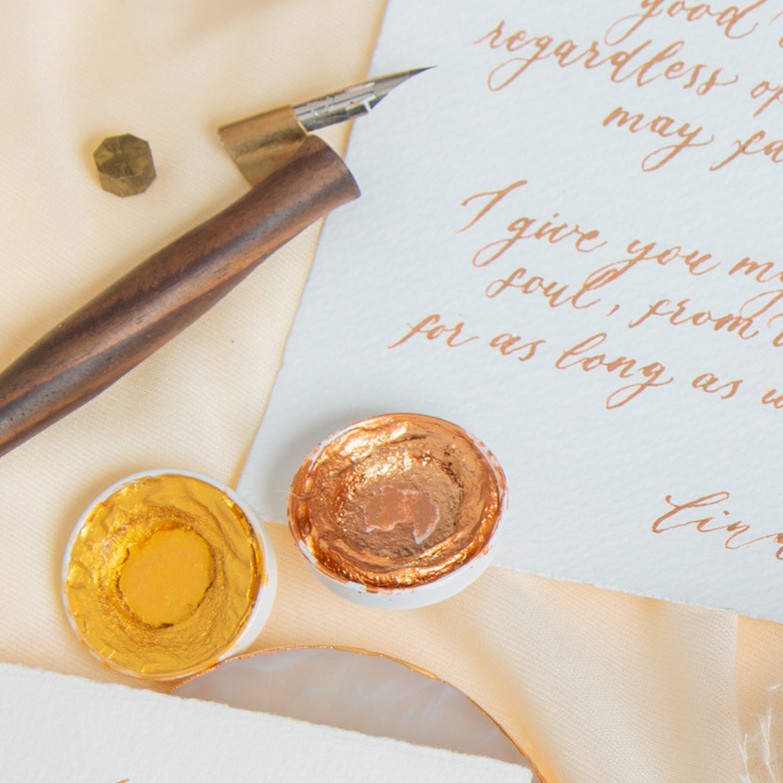 good
regardless of
may fa
I give you my
soul, from
for as long as